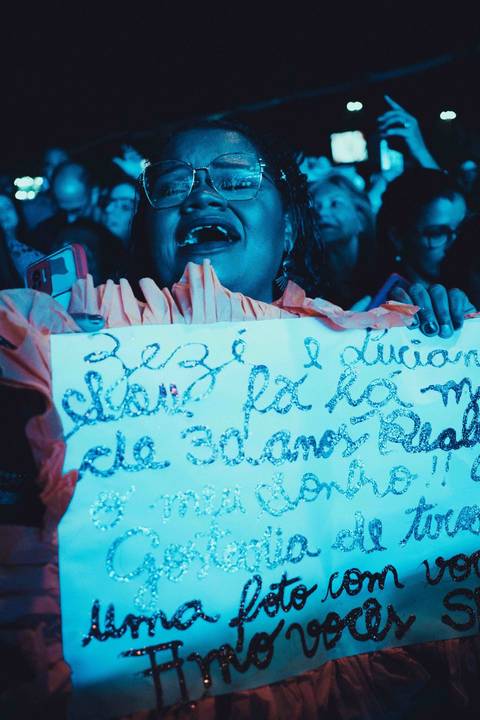 Zezé e Lucian
Sou fã há m
de 30 anos Reali
o meu sonho!!
Gostaria de tirar
uma foto com voc
Amo vocês